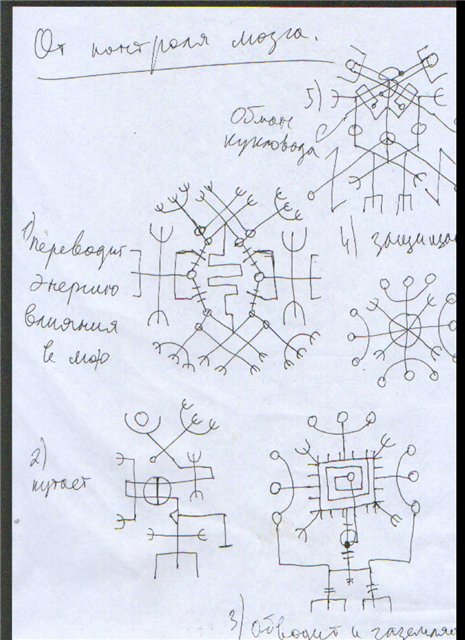 От контроля мозга.
5)
Обман
кукловода
1)
переводит
энергию
влияния
в мою
4) защища
2)
путает
3) Отводит и заземляет